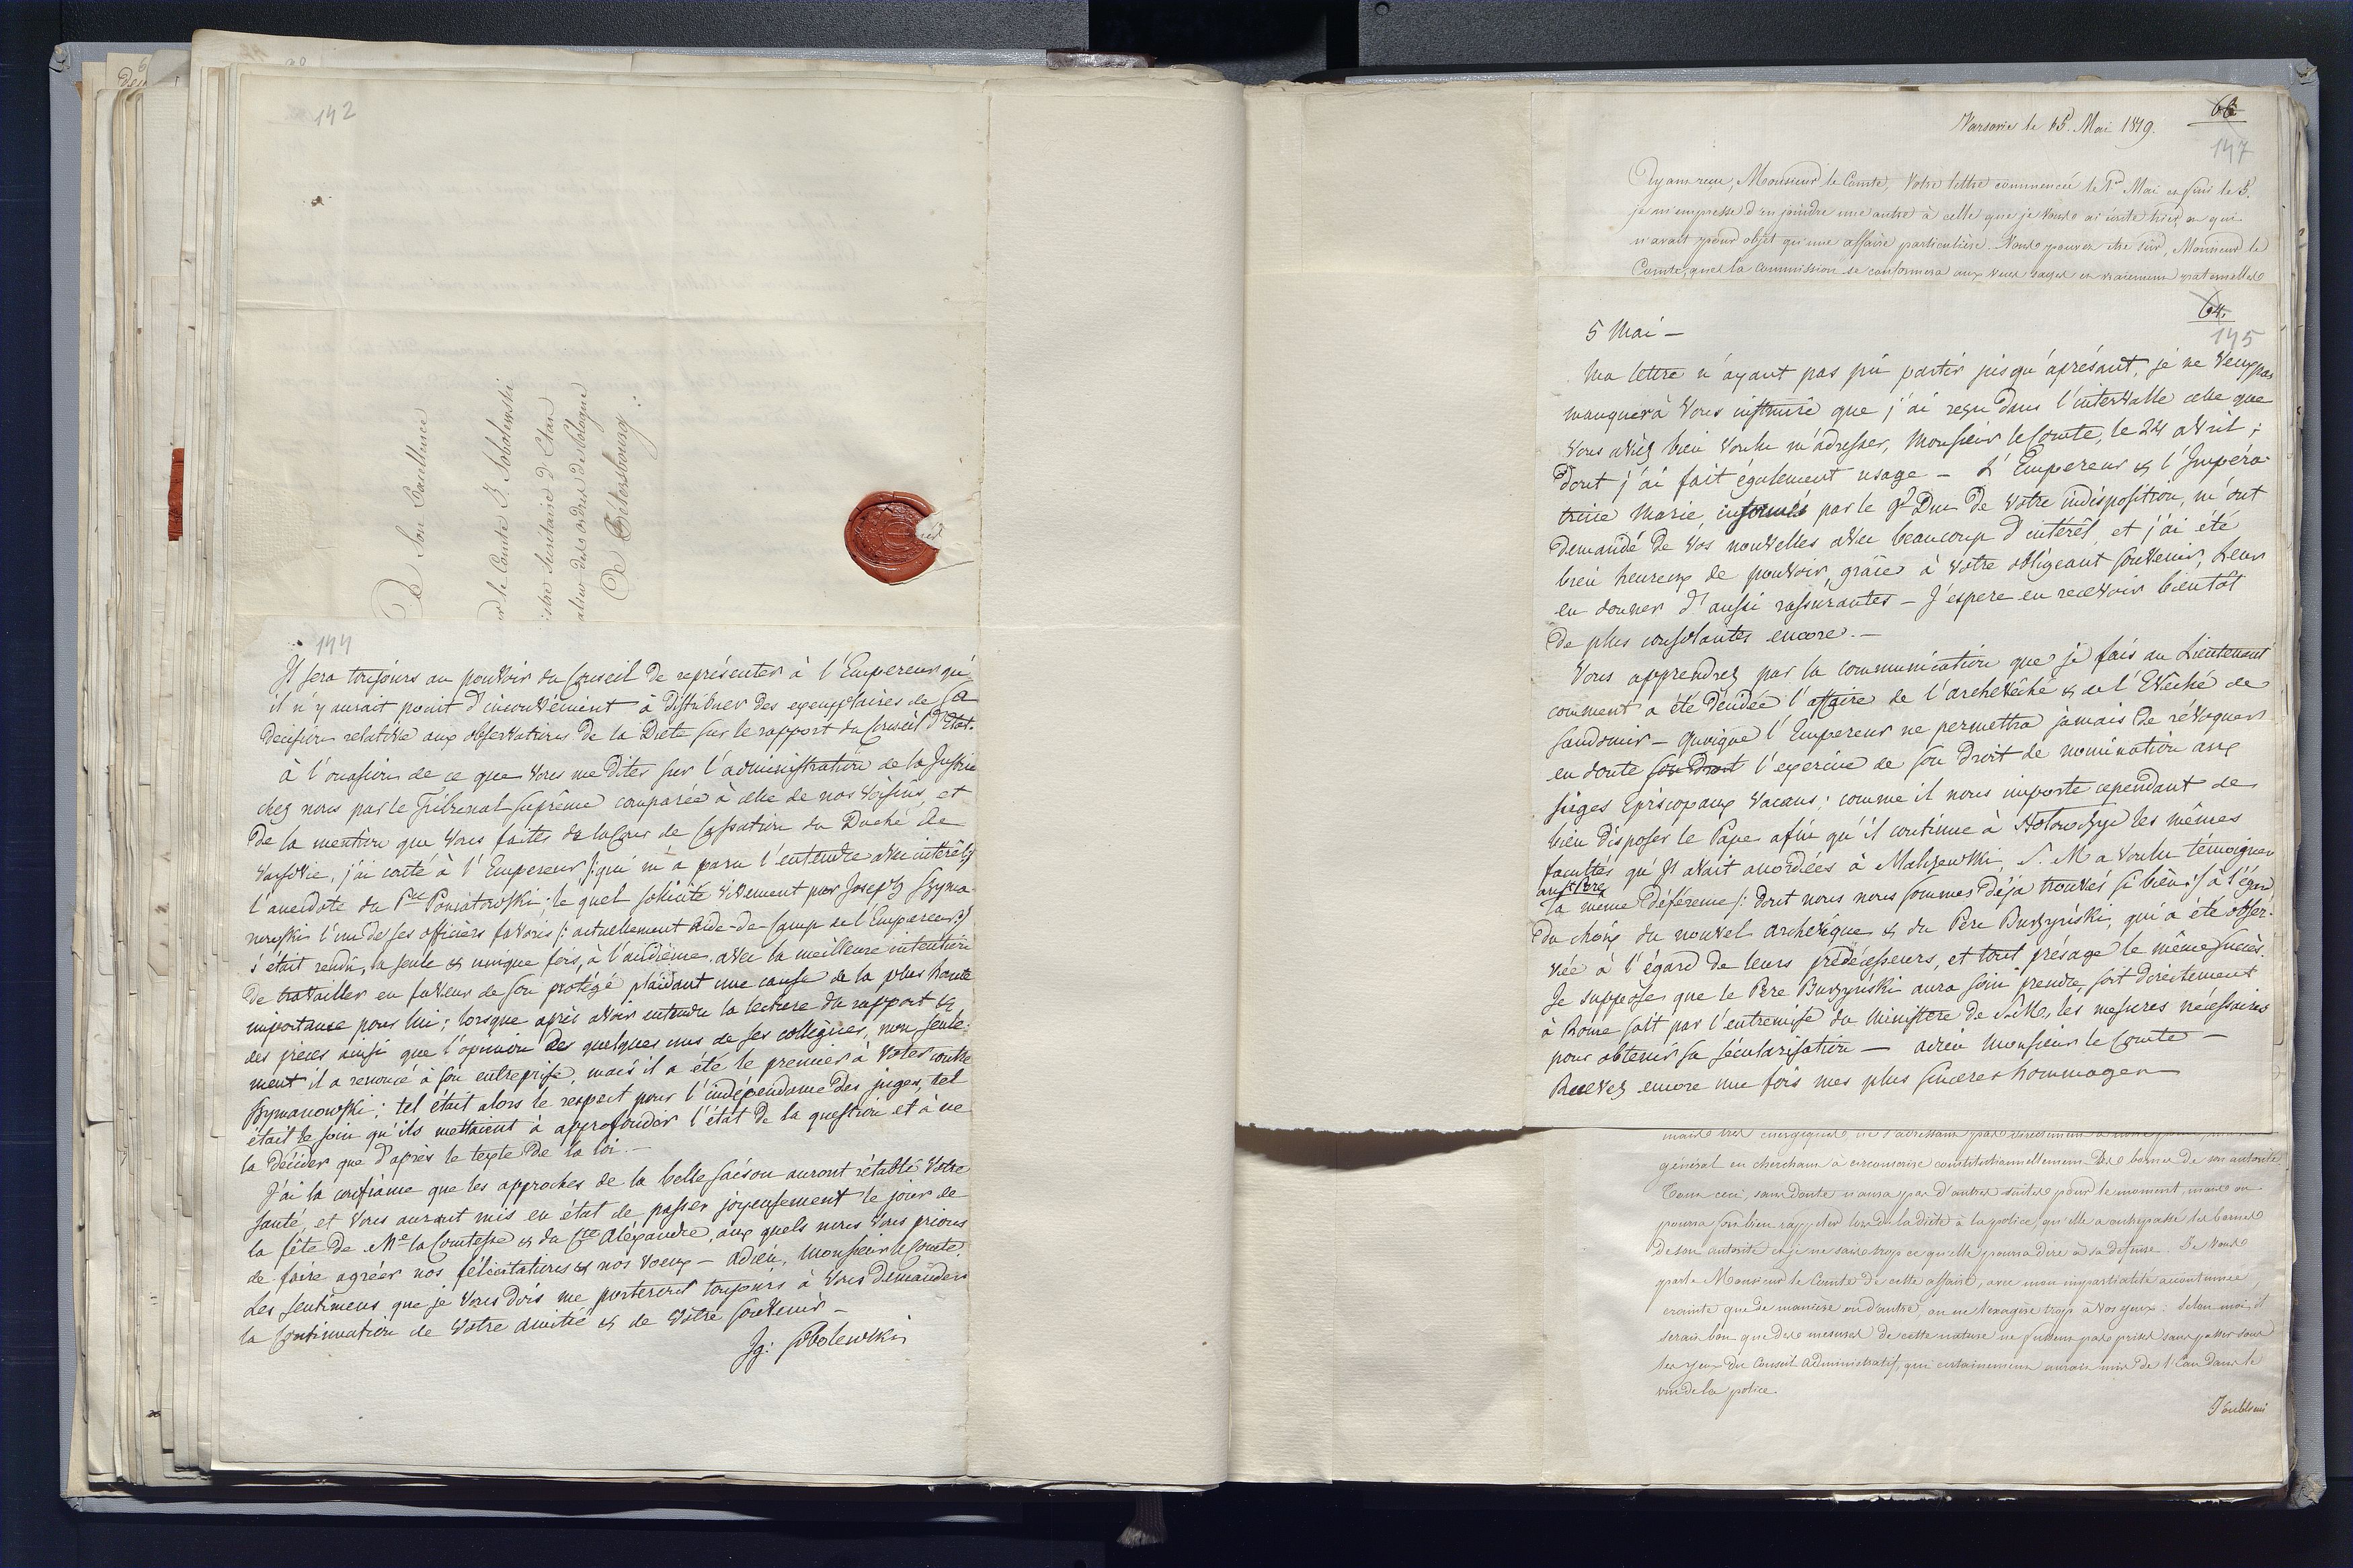 142
A Son Excellence
r le Comte I. Sobolewski
istre Secrétaire d'Etat
alier des ordres de Pologne
à Pétersbourg.
144
Il sera toujours au pouvoir du Conseil de représenter à l'Empereur qu'
il n'y aurait point d'inconvénient à distribuer des exemplaires de Sa
décision relative aux observations de la Diète sur le rapport du Conseil d'Etat.
à l'occasion de ce que Vous me dites sur l'administration de la Justice
chez nous par le Tribunal Suprême comparée à celle de nos voisins, et
de la mention que Vous faites de la Cour de Cassation du Duché de
Varsovie, j'ai conté à l'Empereur /: qui m'a paru l'entendre avec intérêt :/
l'anecdote du Pce Poniatowski; le quel sollicité vivement par Joseph Szyma-
nowski l'un de ses officiers favoris /: actuellement Aide-de-Camp de l'Empereur :/
s'était rendu, la seule & unique fois, à l'audience, avec la meilleure intention
de travailler en faveur de son protégé plaidant une cause de la plus haute
importance pour lui; lorsque après avoir entendu la lecture du rapport &
des pièces ainsi que l'opinion des quelques uns de ses collègues, non seule-
ment il a renoncé à son entreprise, mais il a été le premier à voter contre
Szymanowski; tel était alors le respect pour l'indépendance des juges, tel
était le soin qu'ils mettaient à approfondir l'état de la question et à ne
la décider que d'après le texte de la loi.—
J'ai la confiance que les approches de la belle saison auront rétabli Votre
santé, et Vous auront mis en état de passer joyeusement le jour de
la fête de Me la Comtesse & du Cte Aléxandre, aux quels nous Vous prions
de faire agréer nos félicitations & nos voeux — Adieu, Monsieur le Comte.
Les sentimens que je Vous dois me porteront toujours à Vous demander
la continuation de Votre amitié & de Vôtre souvenir —
Ig: Sobolewski
66
Varsovie le 15. Mai 1819.
147
Ayant reçu, Monsieur le Comte, Votre lettre commencée le 1er Mai et finie le 5.
je m'empresse d'en joindre une autre à celle que je Vous ai écrite hier, et qui
n'avait pour objet qu'une affaire particulière. Vous pouvez être sûr, Monsieur le
Comte, que la Commission se conformera aux vues sages et vraiement paternelles
64.
145
5 Mai —
Ma lettre n'ayant pas pû partir jusqu'àprésent, je ne veux pas
manquer à Vous instruire que j'ai reçu dans l'intervalle celle que
Vous aviez bien voulu m'adresser, Monsieur le Comte, le 24 Avril;
dont j'ai fait également usage — L'Empereur & l'Impéra-
trice Marie, informés par le Gd Duc de Votre indisposition, m'ont
demandé de Vos nouvelles avec beaucoup d'intérêt, et j'ai été
bien heureux de pouvoir, grâce à Votre obligeant souvenir, Leur
en donner d'aussi rassurantes — J'espere en recevoir bientôt
de plus consolantes encore.—
Vous apprendrez par la communication que je fais au Lieutenant
comment a été décidée l'affaire de l'archevêché & de l'Evêché de
Sandomir — Quoique l'Empereur ne permettra jamais de révoquer
en doute son Droit l'exercice de son Droit de nomination aux
sièges Episcopaux vacans; comme il nous importe cependant de
bien disposer le Pape afin qu'il continue à Hołowczyc les mêmes
facultés qu'Il avait accordées à Malczewski, S. M. a voulu témoigner
au St Père
la même déférence /: dont nous nous sommes déja trouvés si bien :/ à l'égard
du choix du nouvel archevêque & du Père Burzyński, qui a été obser-
vée à l'égard de leurs prédécesseurs, et tout présage le même succès.
Je suppose que le Père Burzyński aura soin prendre, soit directement
à Rome soit par l'entremise du Ministère de S. M., les mesures nécessaires
pour obtenir sa sécularisation — Adieu Monsieur le Comte —
Recevez encore une fois mes plus sincères hommages
général en cherchant à circonscrire constitutionnellement les bornes de son autorité
Tout ceci, sans doute n'aura pas d'autres suites pour le moment, mais on
pourra fort bien rappeler lors de la diète à la police, qu'elle a outrepassé les bornes
de son autorité et je ne sais trop ce qu'elle pourra dire à sa défense. Je Vous
parle Monsieur le Comte de cette affaire, avec mon impartialité accoutumée,
crainte que de manière ou d'autre, on ne l'exagère trop à Vos yeux: selon moi, il
serait bon que des mesures de cette nature ne fussent pas prises sans passer sous
les yeux du Conseil Administratif, qui certainement aurait mis de l'eau dans le
vin de la police.
J'oubliai